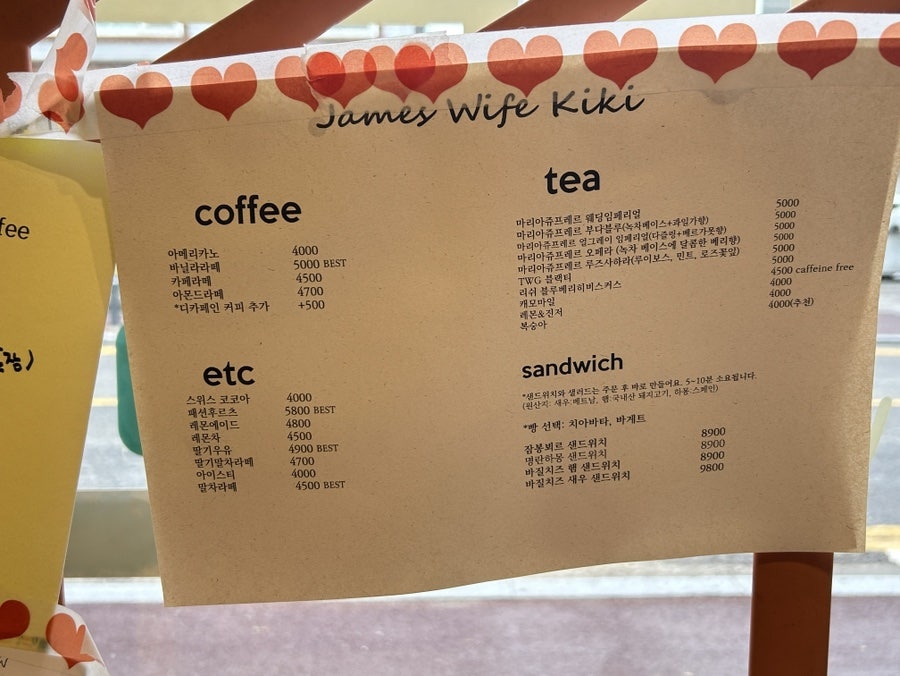 James Wife Kiki
coffee
아메리카노 4000
바닐라라떼 5000 BEST
카페라떼 4500
아몬드라떼 4700
*디카페인 커피 추가 +500
etc
스위스 코코아 4000
패션후르츠 5800 BEST
레몬에이드 4800
레몬차 4500
딸기우유 4900 BEST
딸기말차라떼 4700
아이스티 4000
말차라떼 4500 BEST
tea
마리아쥬프레르 웨딩임페리얼 5000
마리아쥬프레르 부다블루(녹차베이스+과일가향) 5000
마리아쥬프레르 얼그레이 임페리얼(다즐링+베르가못향) 5000
마리아쥬프레르 오페라 (녹차 베이스에 달콤한 베리향) 5000
마리아쥬프레르 루즈사하라(루이보스, 민트, 로즈꽃잎) 5000
TWG 블랙티 5000
리쉬 블루베리히비스커스 4500 caffeine free
캐모마일 4000
레몬&진저 4000
복숭아 4000(추천)
sandwich
*샌드위치와 샐러드는 주문 후 바로 만들어요. 5~10분 소요됩니다.
(원산지: 새우:베트남, 햄:국내산 돼지고기, 하몽:스페인)
*빵 선택: 치아바타, 바게트
잠봉뵈르 샌드위치 8900
명란하몽 샌드위치 8900
바질치즈 햄 샌드위치 8900
바질치즈 새우 샌드위치 9800
fee